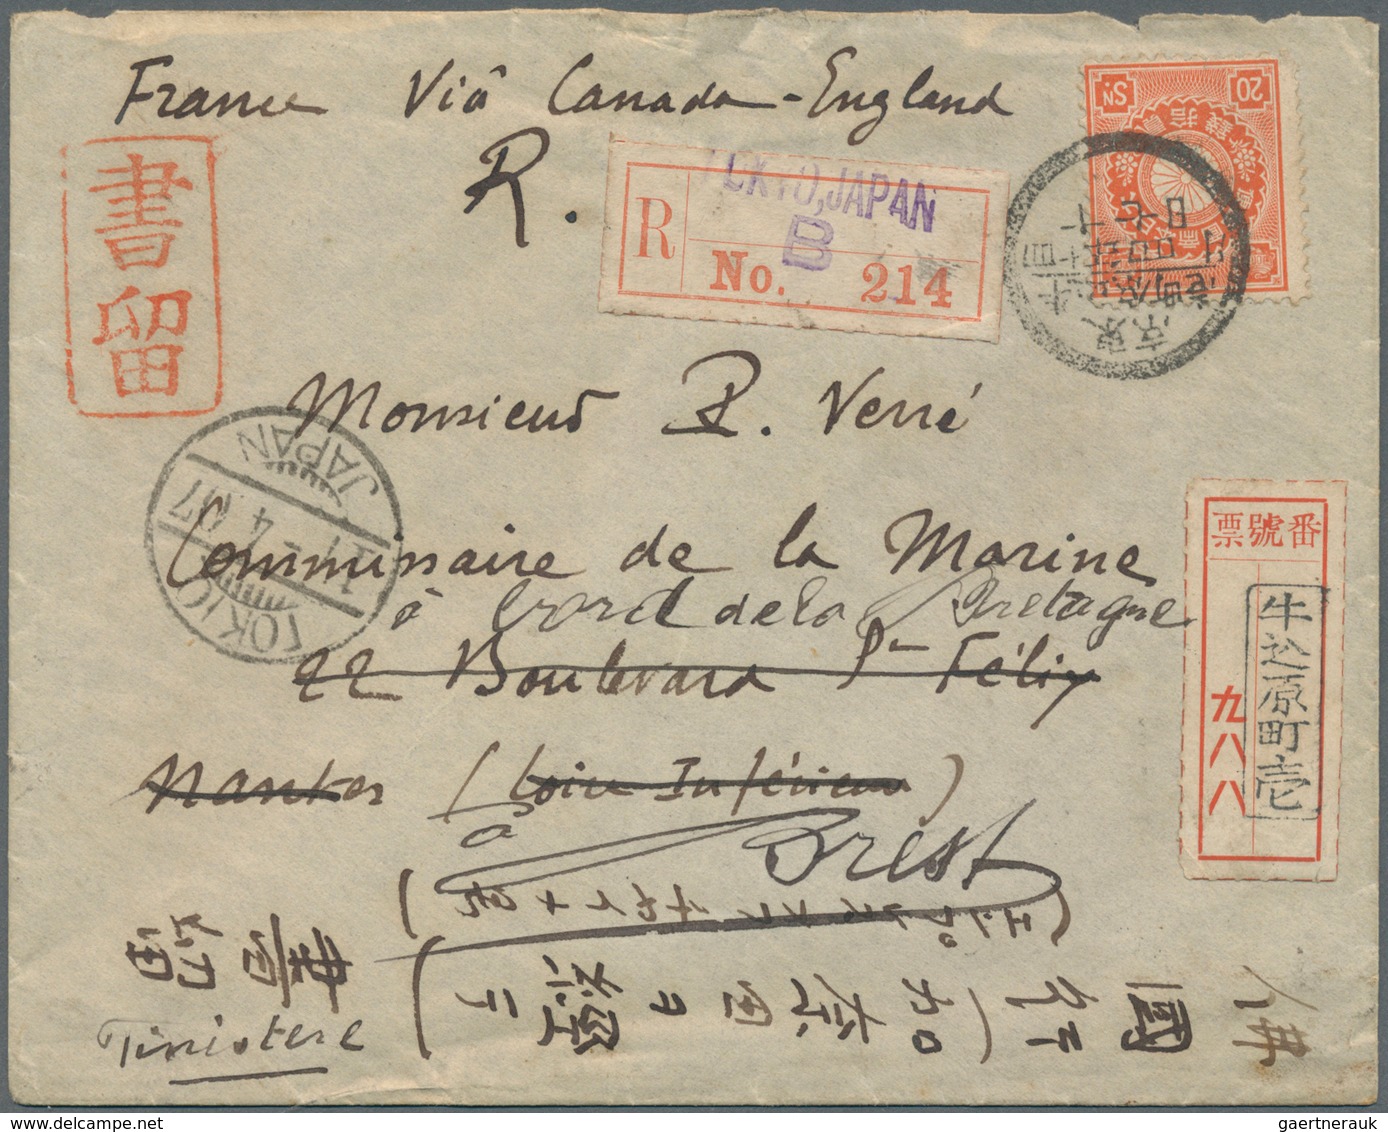 France Viâ Canada-England
R.
書留
TOKYO, JAPAN
B
R No. 214
20 Sn
拾錢
東京
Monsieur P. Verré
TOKIO
17 - 4 07
JAPAN
Commissaire de la Marine
à bord de la Bretagne
22 Boulevard St Félix
Nantes (Loire Inférieure)
à Brest
Finistere
番號票
九八八
牛込原町壱
佛國行(加奈田ヲ經テ)
書留
gaertnerauk
delcampe.net